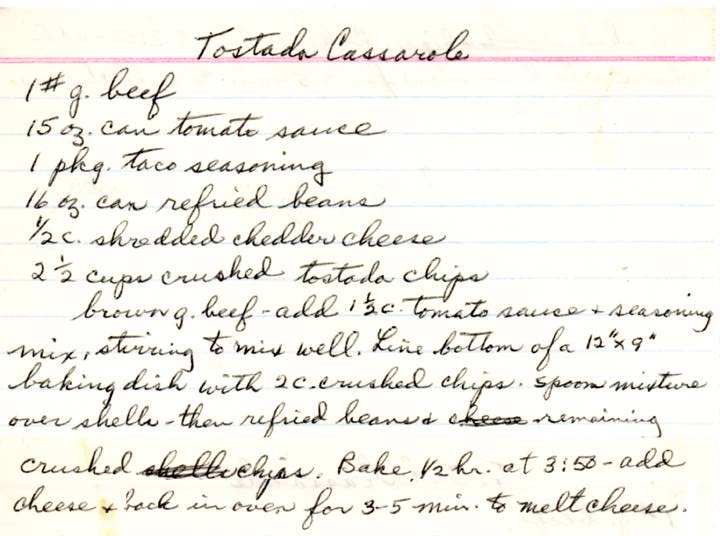 Tostada Cassarole
1# g. beef
15 oz. can tomato sauce
1 pkg. taco seasoning
16 oz. can refried beans
1/2 c. shredded chedder cheese
2 1/2 cups crushed tostada chips
brown g. beef - add 1 1/2 c. tomato sauce + seasoning
mix, stirring to mix well. Line bottom of a 12"x9"
baking dish with 2 c. crushed chips. Spoon mixture
over shells - then refried beans & cheese remaining
crushed shells chips. Bake 1/2 hr. at 3:50 - add
cheese & back in oven for 3-5 min. to melt cheese.